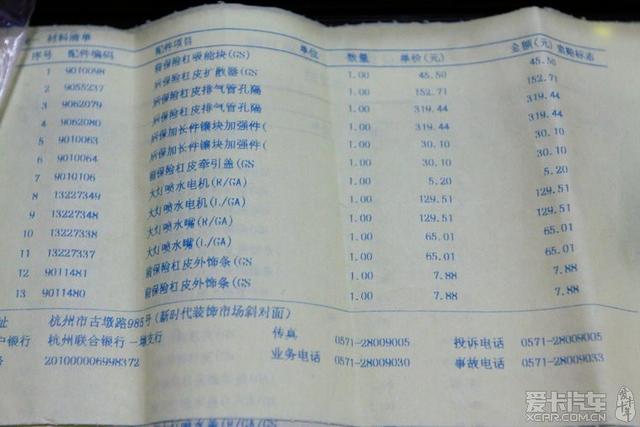 材料清单
序号 配件编码 配件项目 单位 数量 单价(元) 金额(元) 索赔标志
1 9010098 前保险杠吸能块(GS) 1.00 45.50 45.50
2 9055237 后保险杠皮扩散器(GS 1.00 152.71 152.71
3 9062079 后保险杠皮排气管孔隔 1.00 319.44 319.44
4 9062080 后保险杠皮排气管孔隔 1.00 319.44 319.44
5 9010063 后保加长件镶块加强件( 1.00 30.10 30.10
6 9010064 后保加长件镶块加强件( 1.00 30.10 30.10
7 9010106 前保险杠皮牵引盖(GS 1.00 5.20 5.20
8 13227349 大灯喷水电机(R/GA) 1.00 129.51 129.51
9 13227348 大灯喷水电机(L/GA) 1.00 129.51 129.51
10 13227338 大灯喷水嘴(R/GA) 1.00 65.01 65.01
11 13227337 大灯喷水嘴(L/GA) 1.00 65.01 65.01
12 9011481 前保险杠皮外饰条(GS 1.00 7.88 7.88
13 9011480 前保险杠皮外饰条(GS 1.00 7.88 7.88
址 杭州市古墩路985号(新时代装饰市场斜对面)
户银行 杭州联合银行 支行 传真 0571-28009005 投诉电话 0571-28009005
号 201000006998372 业务电话 0571-28009030 事故电话 0571-28009033
爱卡汽车
XCAR.COM.CN